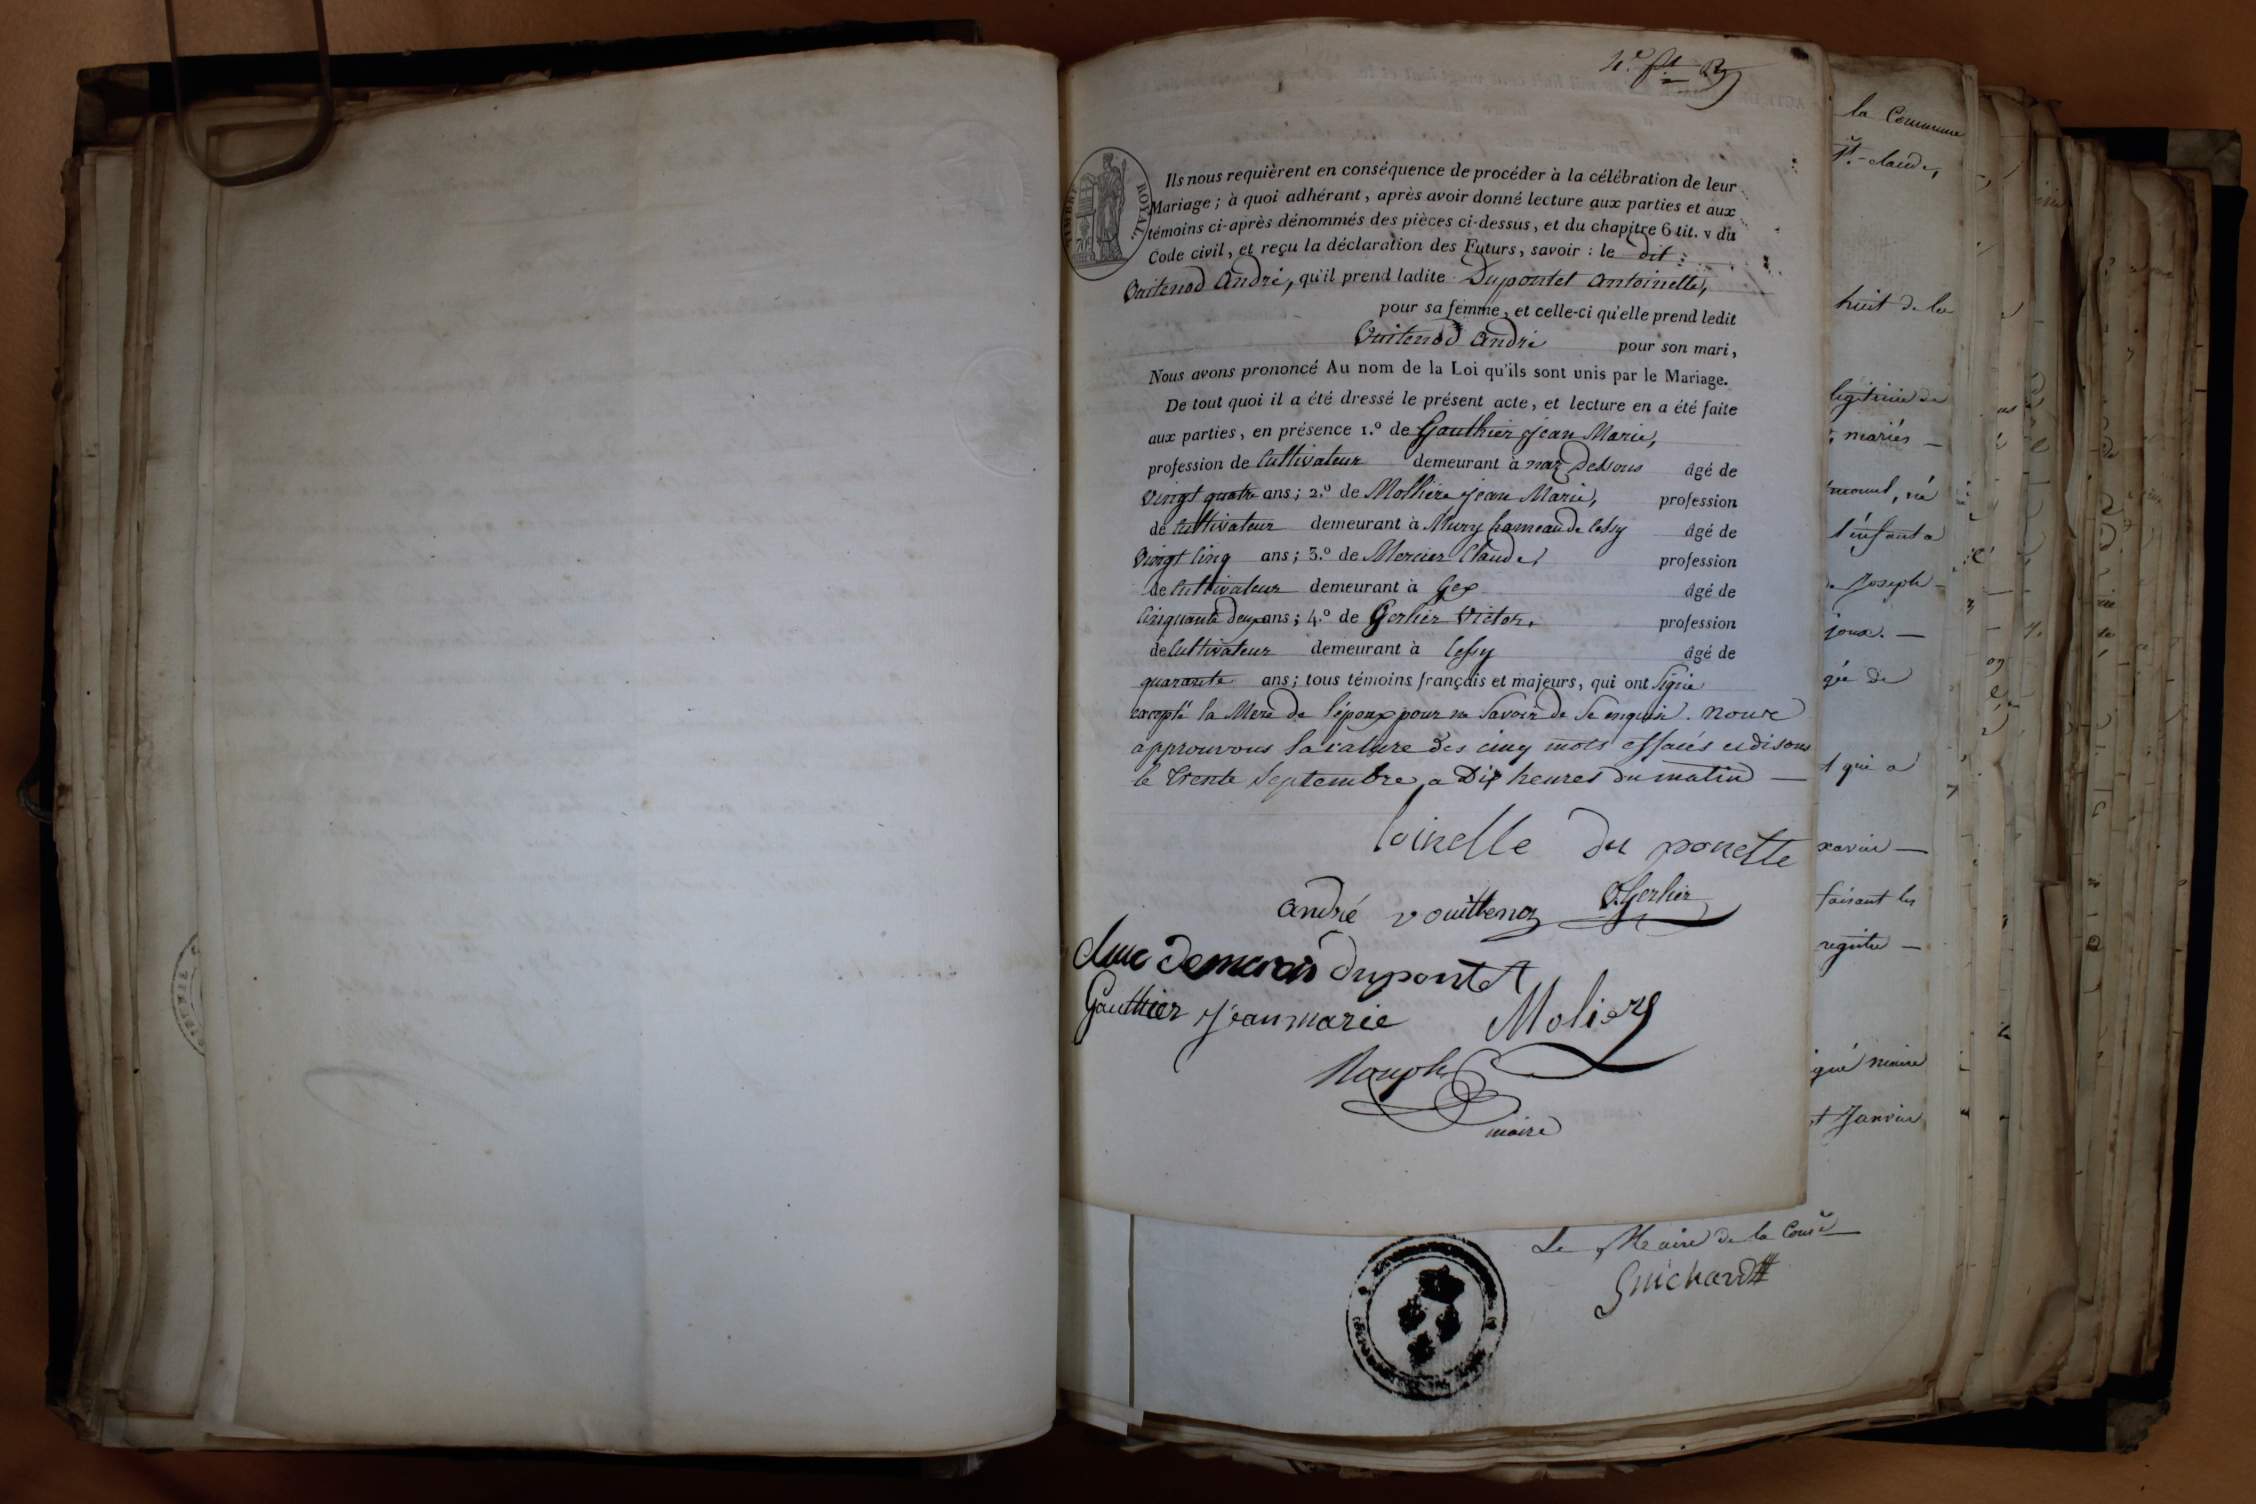 4.e ft
TIMBRE ROYAL.
Ils nous requièrent en conséquence de procéder à la célébration de leur
Mariage ; à quoi adhérant, après avoir donné lecture aux parties et aux
témoins ci-après dénommés des pièces ci-dessus, et du chapitre 6 tit. v du
Code civil, et reçu la déclaration des Futurs, savoir : le dit
Vuitenod André, qu'il prend ladite Dupontet Antoinette,
pour sa femme, et celle-ci qu'elle prend ledit
Vuitenod André pour son mari,
Nous avons prononcé Au nom de la Loi qu'ils sont unis par le Mariage.
De tout quoi il a été dressé le présent acte, et lecture en a été faite
aux parties, en présence 1.º de Gauthier Jean Marie,
profession de Cultivateur demeurant à naz Dessous âgé de
Vingt quatre ans ; 2.º de Mollière Jean Marie, profession
de Cultivateur demeurant à Mury hameau de Cessy âgé de
Vingt Cinq ans ; 3.º de Mercier Claude, profession
de Cultivateur demeurant à Gex âgé de
Cinquante deux ans ; 4.º de Gerlier Victor, profession
de Cultivateur demeurant à Cessy âgé de
quarante ans ; tous témoins français et majeurs, qui ont Signé
excepté la Mere de l'époux pour ne Savoir de Se enquis. nous
approuvons la rature des cinq mots effacés et disons
le trente Septembre a Dix heures du matin
toinette du ponette
andré vouittenoz V. Gerlier
Demarais Dupontet
Gauthier Jean marie Moliere
maire
la Commune
St. Claude,
huit de la
légitime de
mariés
né
l'enfant a
de Joseph
joux.
gée de
t qui a
xavier
faisant les
registre
gné maire
t Janvier
Le Maire de la Com.e
Guichard